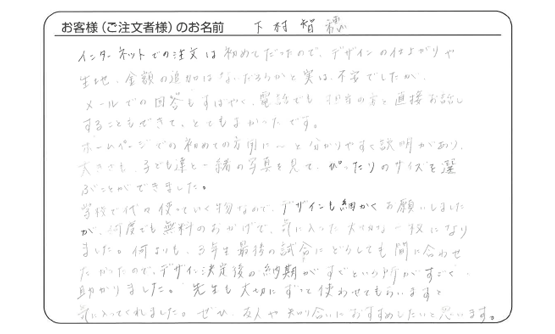 お客様(ご注文者様)のお名前 下村智穂
インターネットでの注文は初めてだったので、デザインの仕上がりや
生地、金額の追加はないだろうかと実は不安でしたが、
メールでの回答もすばやく、電話でも担当の方と直接お話し
することもできて、とてもよかったです。
ホームページでの初めての方用に〜と分かりやすく説明があり、
大きさも、子ども達と一緒の写真を見て、ぴったりのサイズを選
ぶことができました。
学校で代々使っていく物なので、デザインも細かくお願いしました
が、何度でも無料のおかげで、気に入った大切な一枚になり
ました。何よりも、3年生最後の試合にどうしても間に合わせ
たかったので、デザイン決定後の納期がすぐという所がすごく
助かりました。先生も大切にずっと使わせてもらいますと
気に入ってくれました。ぜひ、友人や知り合いにおすすめしたいと思います。